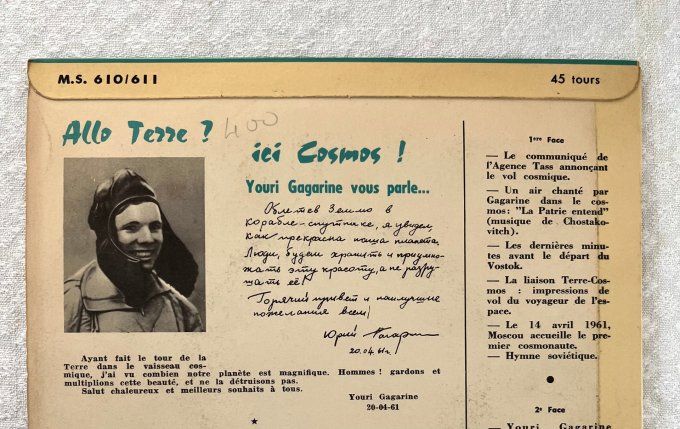 M.S. 610/611
45 tours
Allo Terre ?
400
ici Cosmos !
Youri Gagarine vous parle...
Облетев Землю в
корабле-спутнике, я увидел,
как прекрасна наша планета.
Люди, будем хранить и приумно-
жать эту красоту, а не разру-
шать её!
Горячий привет и наилучшие
пожелания всем!
Юрий Гагарин
20.04.61г.
Ayant fait le tour de la
Terre dans le vaisseau cos-
mique, j'ai vu combien notre planète est magnifique. Hommes ! gardons et
multiplions cette beauté, et ne la détruisons pas.
Salut chaleureux et meilleurs souhaits à tous.
Youri Gagarine
20-04-61
1ere Face
— Le communiqué de
l'Agence Tass annonçant
le vol cosmique.
— Un air chanté par
Gagarine dans le cos-
mos: "La Patrie entend"
(musique de Chostako-
vitch).
— Les dernières minu-
tes avant le départ du
Vostok.
— La liaison Terre-Cos-
mos : impressions de
vol du voyageur de l'es-
pace.
— Le 14 avril 1961,
Moscou accueille le pre-
mier cosmonaute.
— Hymne soviétique.
2e Face
— Youri Gagarine